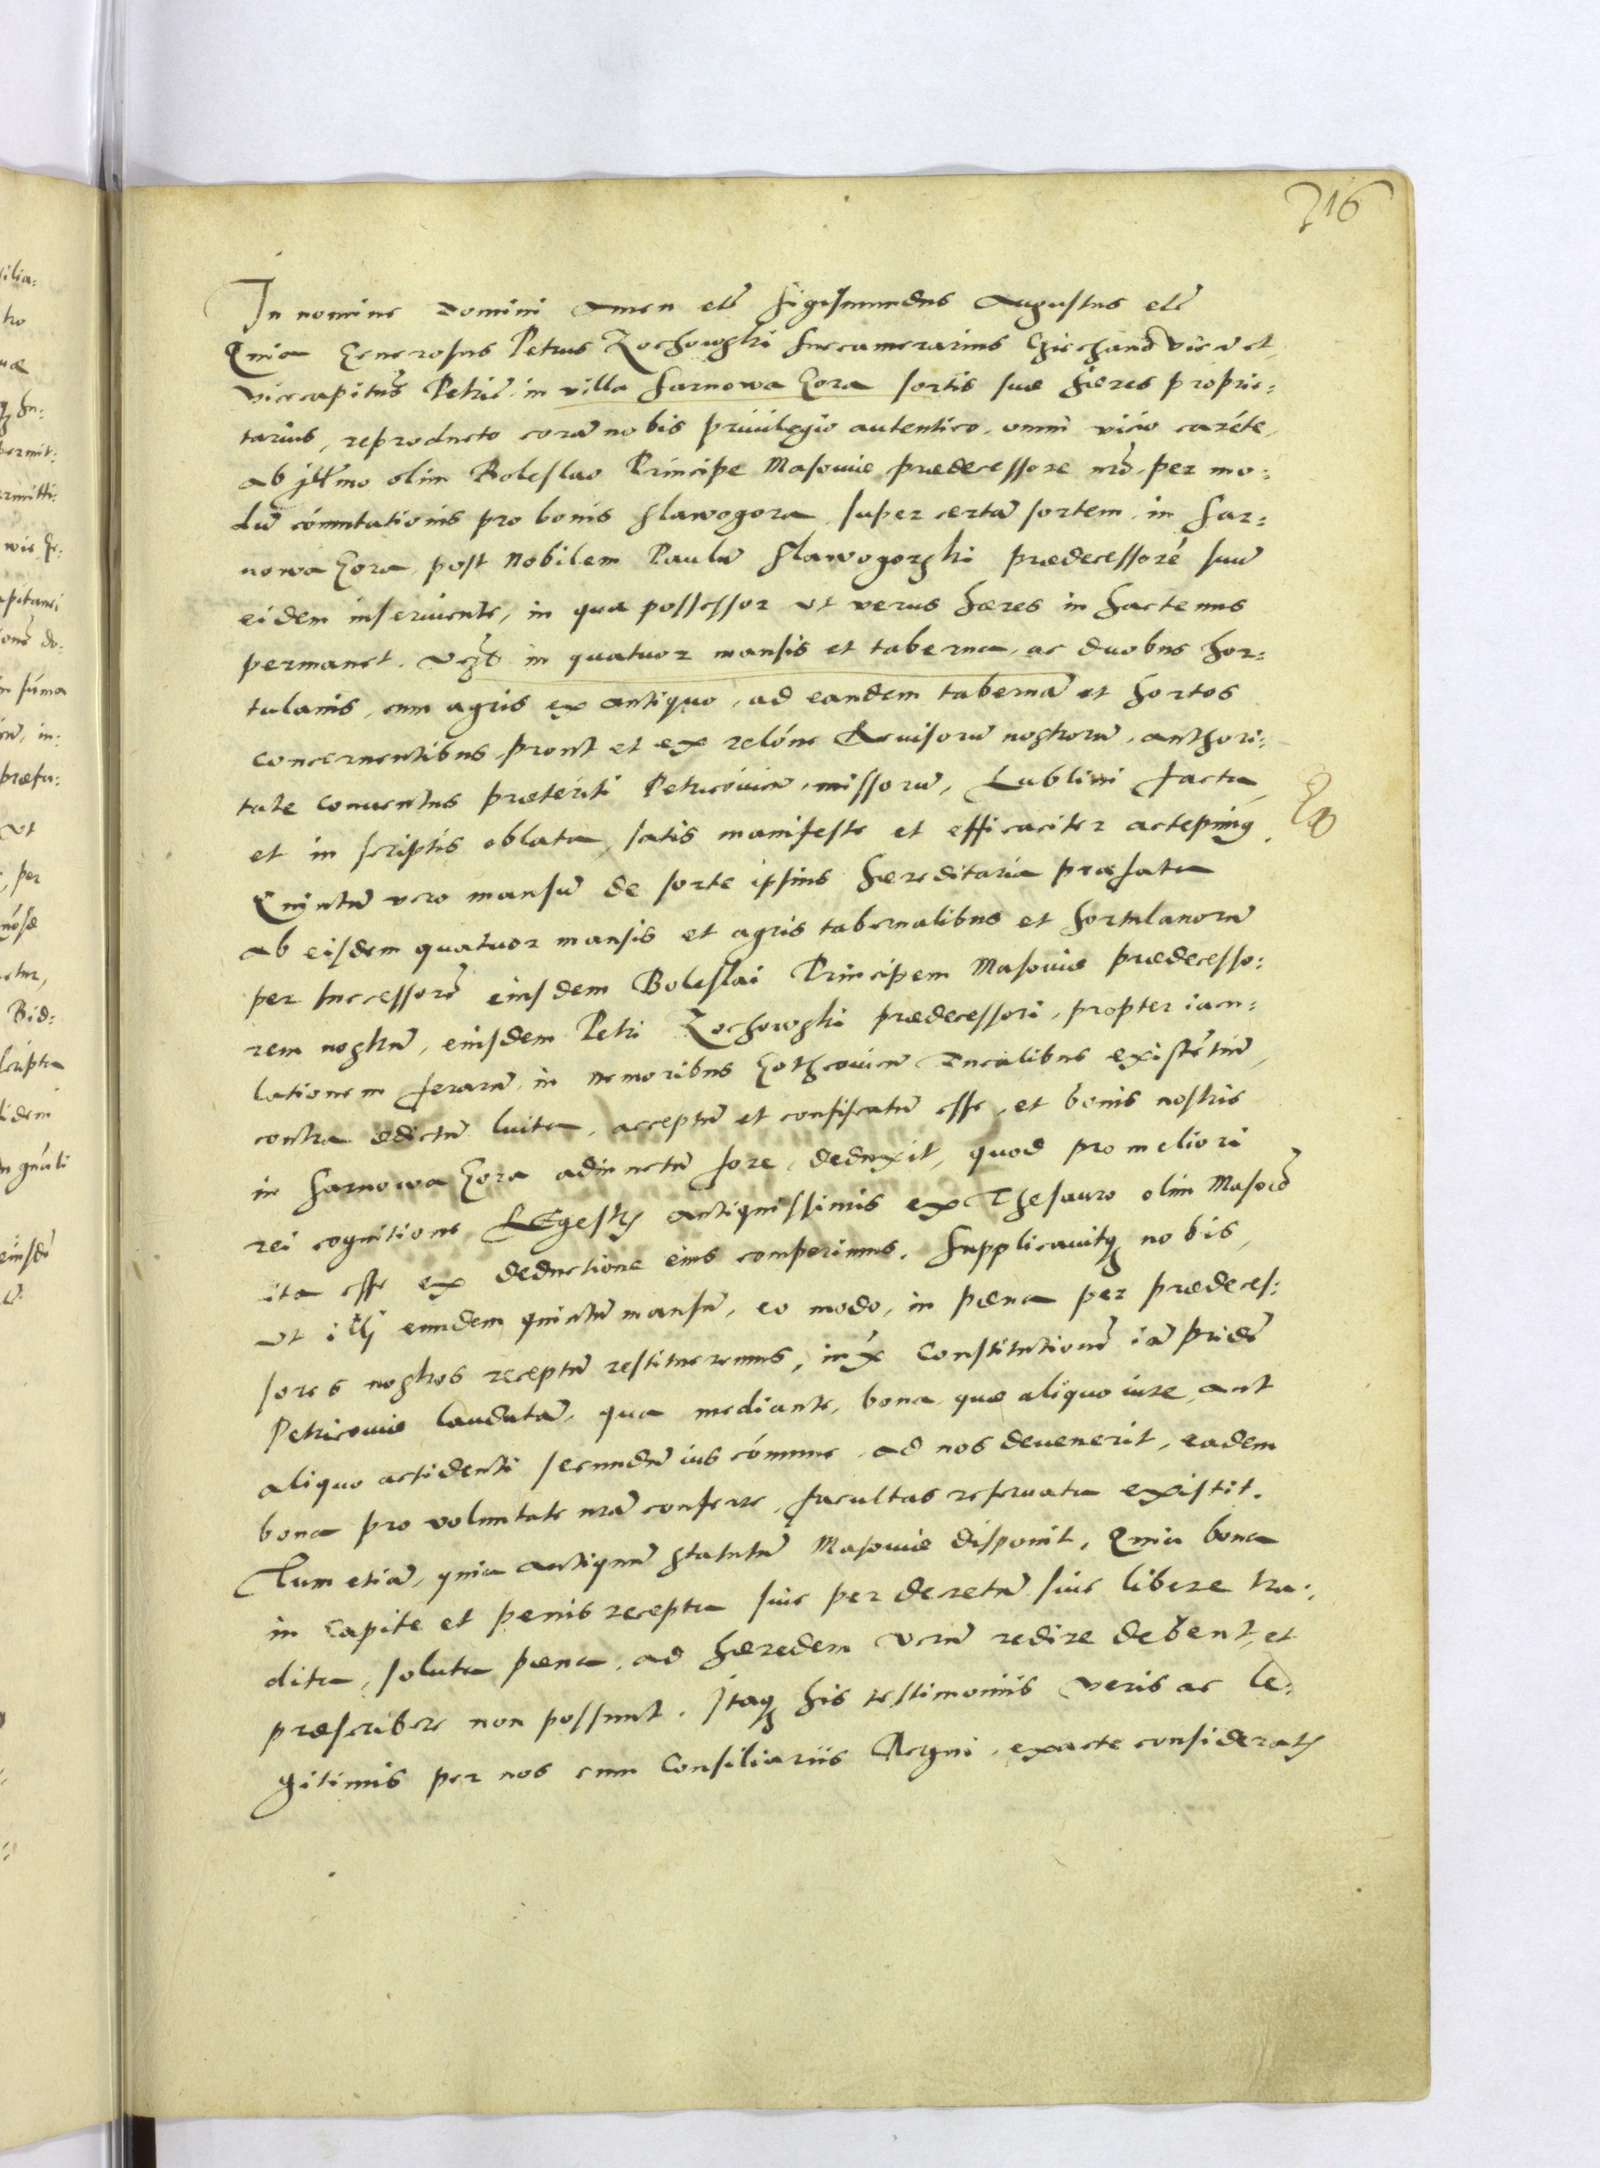 216
In nomine Domini Amen etc̃ Sigismundus Augustus etc̃
Quia Generosus Petrus Zochowski Succamerarius Cziechano vien̄ et
Vicecapitn̄s Petric̃ in villa Sarnowa Gora sortis suæ hæres proprie:
tarius, reproducto corā nobis priuilegio autentico, omni vicio carẽte,
ab jllmo olim Boleslao Principe Masouiæ prædecessore nrõ, per mo:
dũ cõmutationis pro bonis Slawogora, super certā sortem, in Sar:
nowa Gora, post Nobilem Paulũ Slawogorski prædecessorẽ suũ
eidem inseruiente, in qua possessor ut verus hæres in hactenus
permanet. in quatuor mansis et taberna, ac duobus hor:
tulanis, cum agris ex antiquo, ad eandem tabernā et hortos
concernentibus, prout et ex relõne Reuisorũ nostrorũ, authori:
tate Conuentus præteriti Petricouien̄, missorũ, Lublini facta
et in scriptis oblata, satis manifeste et efficaciter accepimus.
Quintũ vero mansũ de sorte ipsius hæreditaria præfata
ab eisdem quatuor mansis et agris tabernalibus et hortulanorũ
per successorẽ eiusdem Boleslai Principem Masouiæ prædecesso:
rem nostrũ, eiusdem Petri Zochowski prædecessori, propter iacu:
lationem ferarũ, in nemoribus Ducalibus existẽtiũ,
contra edictũ luita, acceptũ et confiscatũ esse, et bonis nostris
in Sarnowa Gora adiunctũ fore, deduxit, quod pro meliori
rei cognitione REgestis antiquissimis ex Thesauro olim Masoviæ
ita esse ex deductione eius comperimus. Supplicauitq nobis,
ut illi eundem quintũ mansũ, eo modo, in pæna per prædeces:
sores nostros receptũ restitueremus, iux̃ Constitutionẽ iā pridẽ
Petricouiæ laudatā, qua mediante, bona quæ aliquo iure, aut
aliquo accidenti secundũ ius cõmune, ad nos deuenerit, eadem
bona pro voluntate nrā conferre, facultas reseruata existit.
Tum etiā, quia antiquũ statutũ Masouiæ disponit, Quia bona
in capite et penis recepta siue per decretũ siue libere tra:
dita, soluta pæna, ad hæredem verũ redire debent, et
præscribere non possunt. Itaq his testimoniis veris ac le:
gitimis per nos cum Consiliariis Regni, exacte consideratis